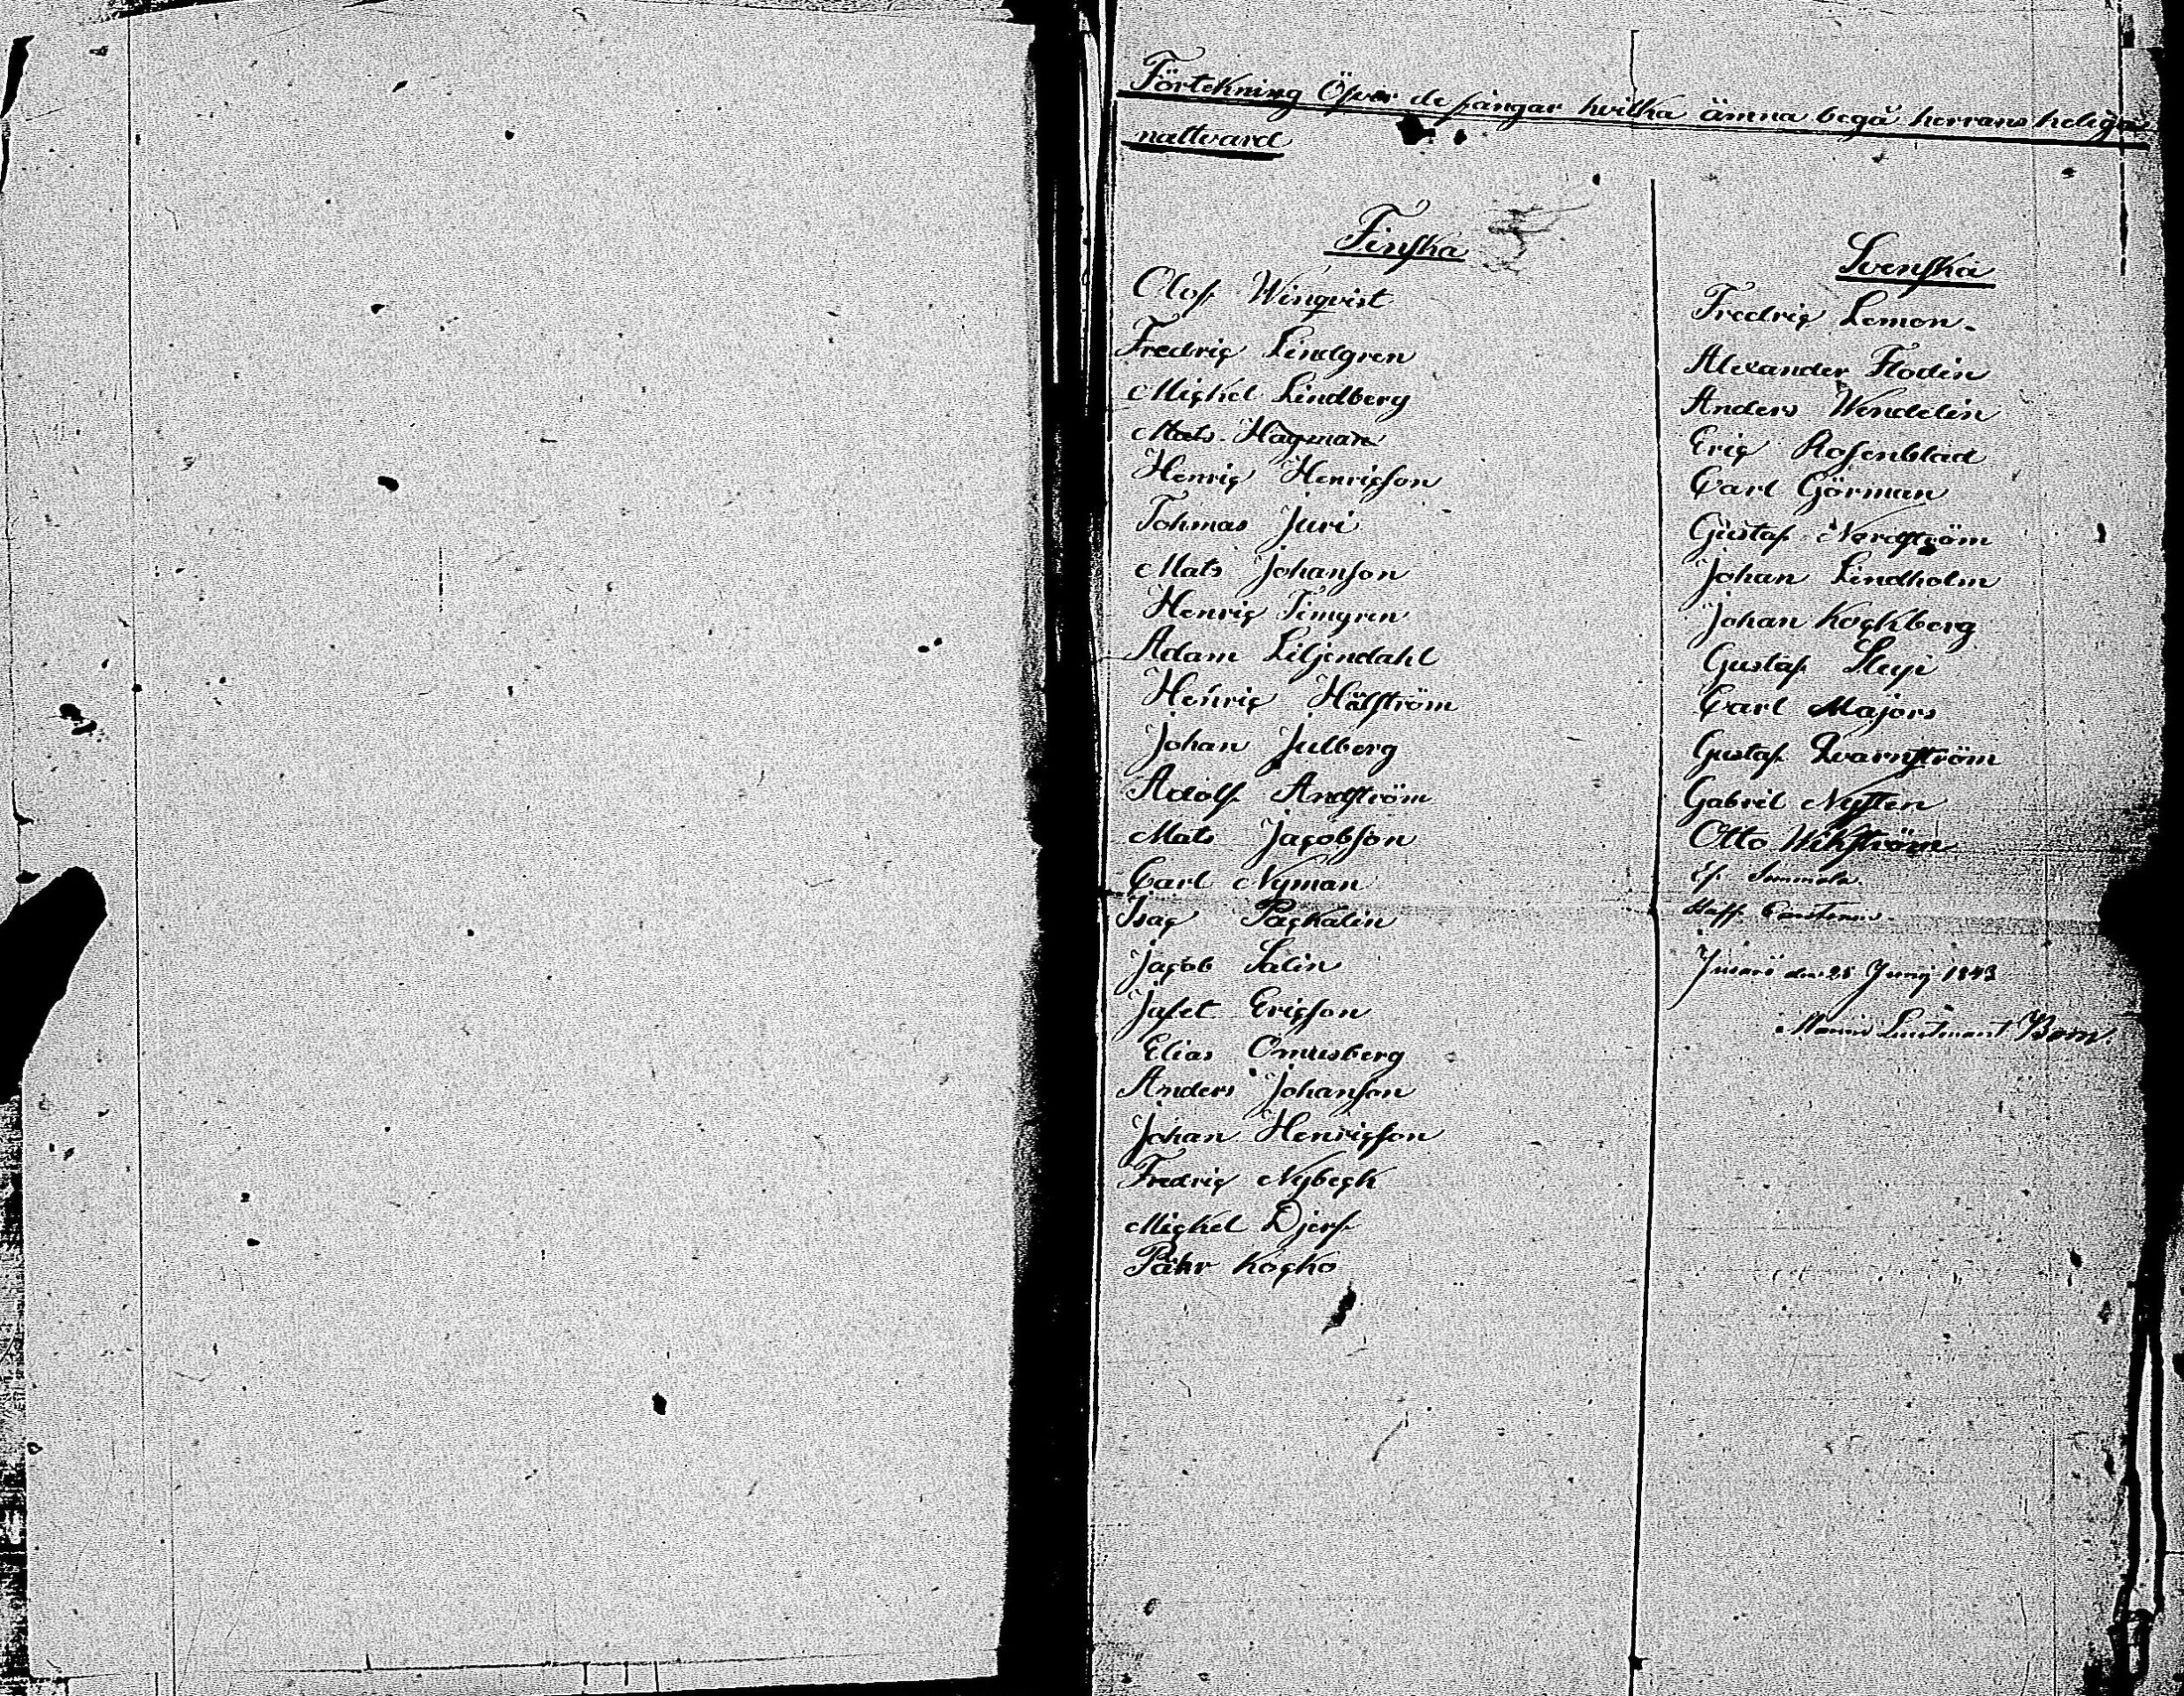 Förtekning Öfver de fångar hvilka ämna begå herrans heliga
nattvard
Finska
Olof Winqvist
Fredric Lindgren
Mickel Lindberg
Mats Hagman
Henric Henricson
Tohmas Juri
Mats Johanson
Henric Timgren
Adam Liljendahl
Henric Hälström
Johan Julberg
Adolf Andström
Mats Jacobson
Carl Nyman
Isac Packalin
Jacob Salin
Jafet Ericson
Elias Omusberg
Anders Johanson
Johan Henricson
Fredric Nybeck
Mickel Djerf
Påhr Kocko
Svenska
Fredric Lemon
Alexander Flodin
Anders Wendelin
Eric Rosenblad
Carl Görman
Gustaf Nordström
Johan Lindholm
Johan Kockberg
Gustaf
Carl Majors
Gustaf Qvarnström
Gabril Nysten
Otto Wikström
den 25 Junij 1843
Lieutenant